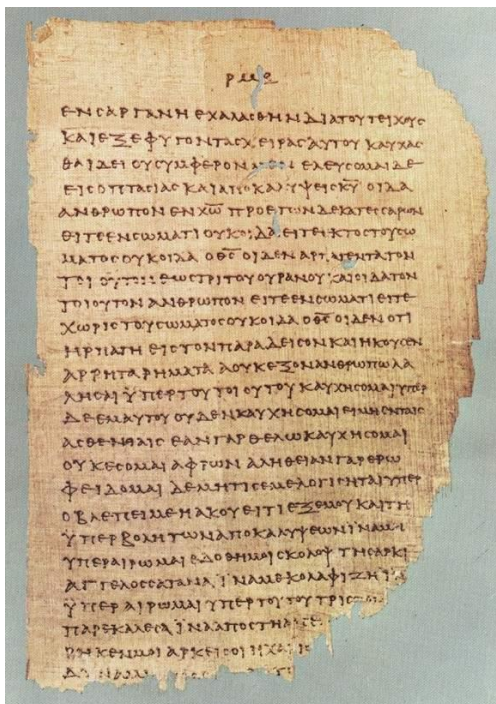 ΡΜΘ
ΕΝϹΑΡΓΑΝΗΕΧΑΛΑϹΘΗΝΔΙΑΤΟΥΤΕΙΧΟΥϹ
ΚΑΙΕΞΕΦΥΓΟΝΤΑϹΧΕΙΡΑϹΑΥΤΟΥΚΑΥΧΑϹ
ΘΑΙΔΕΙΟΥϹΥΜΦΕΡΟΝ ΕΛΕΥϹΟΜΑΙΔΕ
ΕΙϹΟΠΤΑϹΙΑϹΚΑΙΑΠΟΚΑΛΥΨΕΙϹΚ̅Υ̅ΟΙΔΑ
ΑΝΘΡΩΠΟΝΕΝΧ̅Ω̅ΠΡΟΕΤΩΝΔΕΚΑΤΕϹϹΑΡΩΝ
ΕΙΤΕΕΝϹΩΜΑΤΙΟΥΚΟΙΔΑΕΙΤΕΕΚΤΟϹΤΟΥϹΩ
ΜΑΤΟϹΟΥΚΟΙΔΑΟΘ̅Ϲ̅ΟΙΔΕΝΑΡΠΑΓΕΝΤΑΤΟΝ
ΤΟΙΟΥΤΟΝΕΩϹΤΡΙΤΟΥΟΥΡΑΝΟΥΚΑΙΟΙΔΑΤΟΝ
ΤΟΙΟΥΤΟΝΑΝΘΡΩΠΟΝΕΙΤΕΕΝϹΩΜΑΤΙΕΙΤΕ
ΧΩΡΙϹΤΟΥϹΩΜΑΤΟϹΟΥΚΟΙΔΑΟΘ̅Ϲ̅ΟΙΔΕΝΟΤΙ
ΗΡΠΑΓΗΕΙϹΤΟΝΠΑΡΑΔΕΙϹΟΝΚΑΙΗΚΟΥϹΕΝ
ΑΡΡΗΤΑΡΗΜΑΤΑΑΟΥΚΕΞΟΝΑΝΘΡΩΠΩΛΑ
ΛΗϹΑΙΫΠΕΡΤΟΥΤΟΙΟΥΤΟΥΚΑΥΧΗϹΟΜΑΙΥΠΕΡ
ΔΕΕΜΑΥΤΟΥΟΥΔΕΝΚΑΥΧΗϹΟΜΑΙΕΙΜΗΕΝΤΑΙϹ
ΑϹΘΕΝΕΙΑΙϹΕΑΝΓΑΡΘΕΛΩΚΑΥΧΗϹΟΜΑΙ
ΟΥΚΕϹΟΜΑΙΑΦΡΩΝΑΛΗΘΕΙΑΝΓΑΡΕΡΩ
ΦΕΙΔΟΜΑΙΔΕΜΗΤΙϹΕΜΕΛΟΓΙϹΗΤΑΙΥΠΕΡ
ΟΒΛΕΠΕΙΜΕΗΑΚΟΥΕΙΤΙΕΞΕΜΟΥΚΑΙΤΗ
ΫΠΕΡΒΟΛΗΤΩΝΑΠΟΚΑΛΥΨΕΩΝΙΝΑΜΗ
ΥΠΕΡΑΙΡΩΜΑΙΕΔΟΘΗΜΟΙϹΚΟΛΟΨΤΗϹΑΡΚΙ
ΑΓΓΕΛΟϹϹΑΤΑΝΑΪΝΑΜΕΚΟΛΑΦΙΖΗΪΝΑ
ΫΠΕΡΑΙΡΩΜΑΙΥΠΕΡΤΟΥΤΟΥΤΡΙϹ
ΠΑΡΕΚΑΛΕϹΑΪΝΑΑΠΟϹΤΗΑΠ
ΡΗΚΕΝΜΟΙΑΡΚΕΙϹΟΙΗΧΑΡΙϹ
ΔΥΝΑΜ